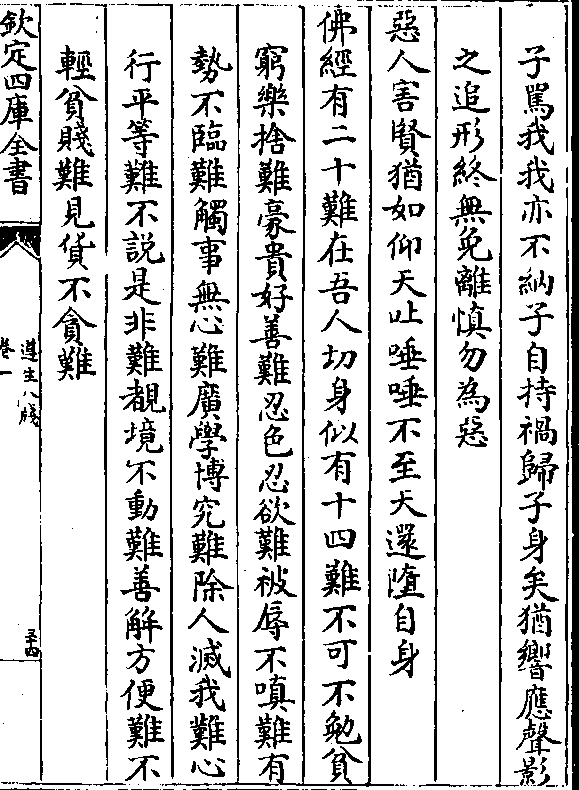 子罵我我亦不納子自持禍歸子身矣猶響應聲影
之追形終無免離慎勿為惡
惡人害賢猶如仰天吐唾唾不至天還墮自身
佛經有二十難在吾人切身似有十四難不可不勉貧
窮樂捨難豪貴好善難忍色忍欲難被辱不嗔難有
勢不臨難觸事無心難廣學博究難除人滅我難心
行平等難不說是非難覩境不動難善解方便難不
輕貧賤難見貨不貪難
欽定四庫全書
遵生八牋
卷一
三十四